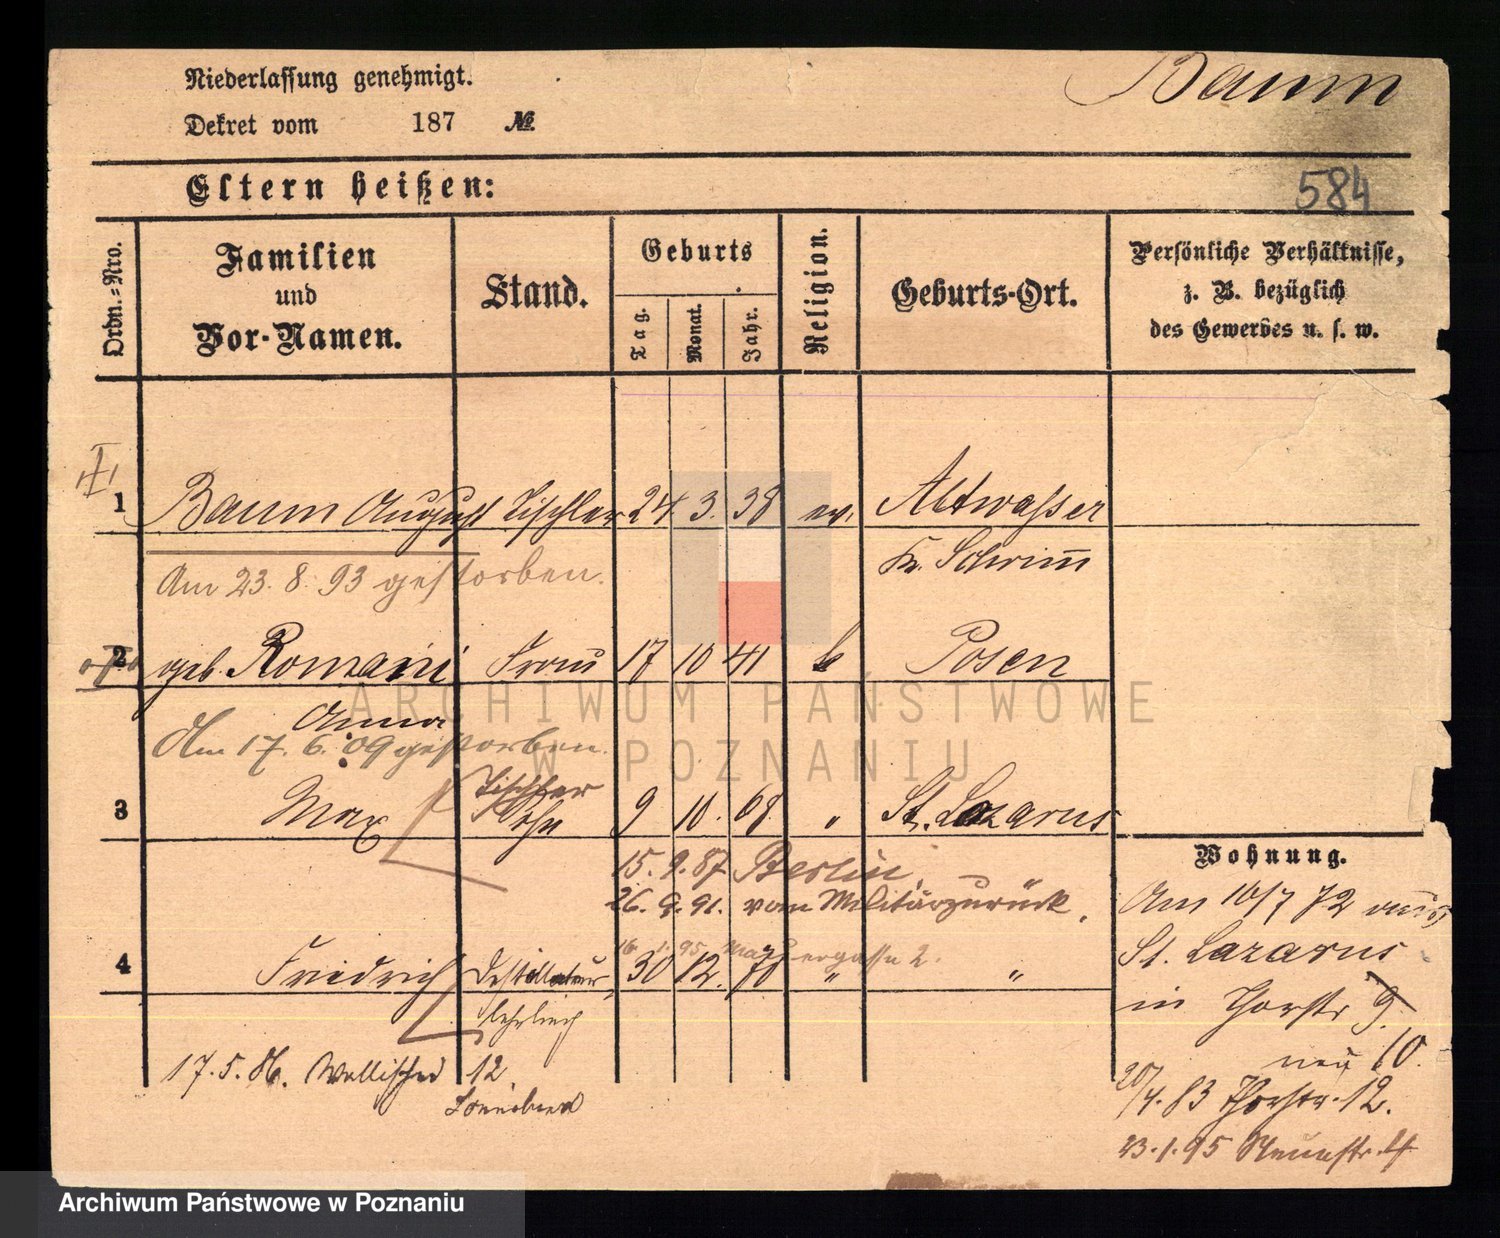 Niederlassung genehmigt.
Dekret vom 187 №
Baum
Eltern heißen:
584
Ordn.-Nro.
Familien und Vor-Namen.
Stand.
Geburts
Tag.
Monat.
Jahr.
Religion.
Geburts-Ort.
Persönliche Verhältnisse,
z. B. bezüglich
des Gewerbes u. s. w.
1 Baum August Tischler 24 3. 38 ev. Altwasser
Kr. Schrimm
Am 23. 8. 93 gestorben.
2 geb. Romani Frau 17 10 41 k Posen
Anna
Am 17. 6. 09 gestorben.
Tischler
3 Max Sohn 9 10. 68 " St. Lazarus
15. 9. 87 Berlin
26. 9. 91. vom Militär zurück.
16. 1. 95 2.
4 Friedrich Destillateur 30 12. 70 " "
lehrling
17. 5. 86. Wallischei 12
Wohnung.
Am 10/7 72 aus
St. Lazarus
in Thorstr 9.
neu 10.
20/4. 83 Thorstr. 12.
23. 1. 95
ARCHIWUM PAŃSTWOWE
W POZNANIU
Archiwum Państwowe w Poznaniu